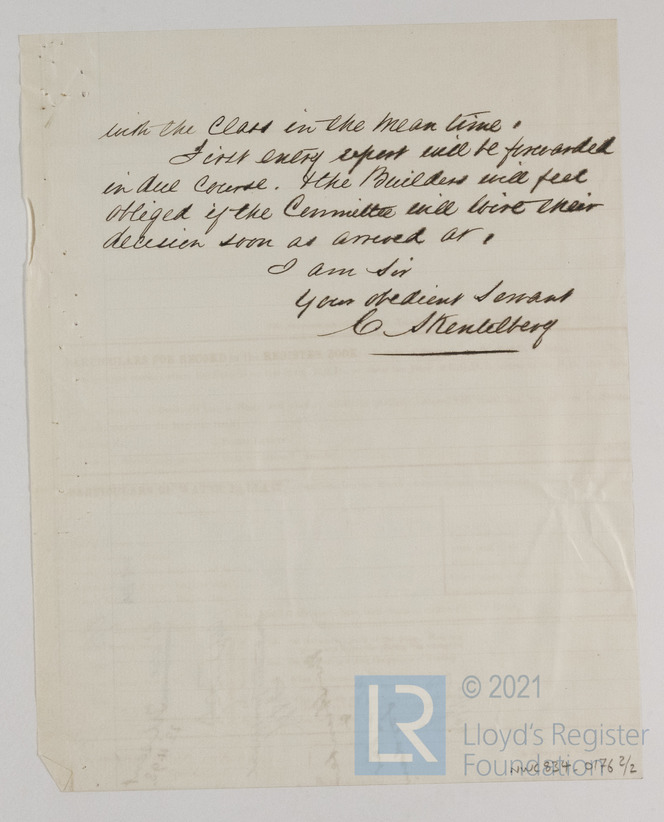 with the Class in the mean time.
First entry report will be forwarded
in due course. & the Builders will feel
obliged if the Committee will wire their
decision soon as arrived at.
I am Sir
Your obedient Servant
C Skentelbery
PARTICULARS FOR RECORD in the REGISTER BOOK
© 2021
LR
Lloyd's Register
Foundation
NWC834-0176 2/2